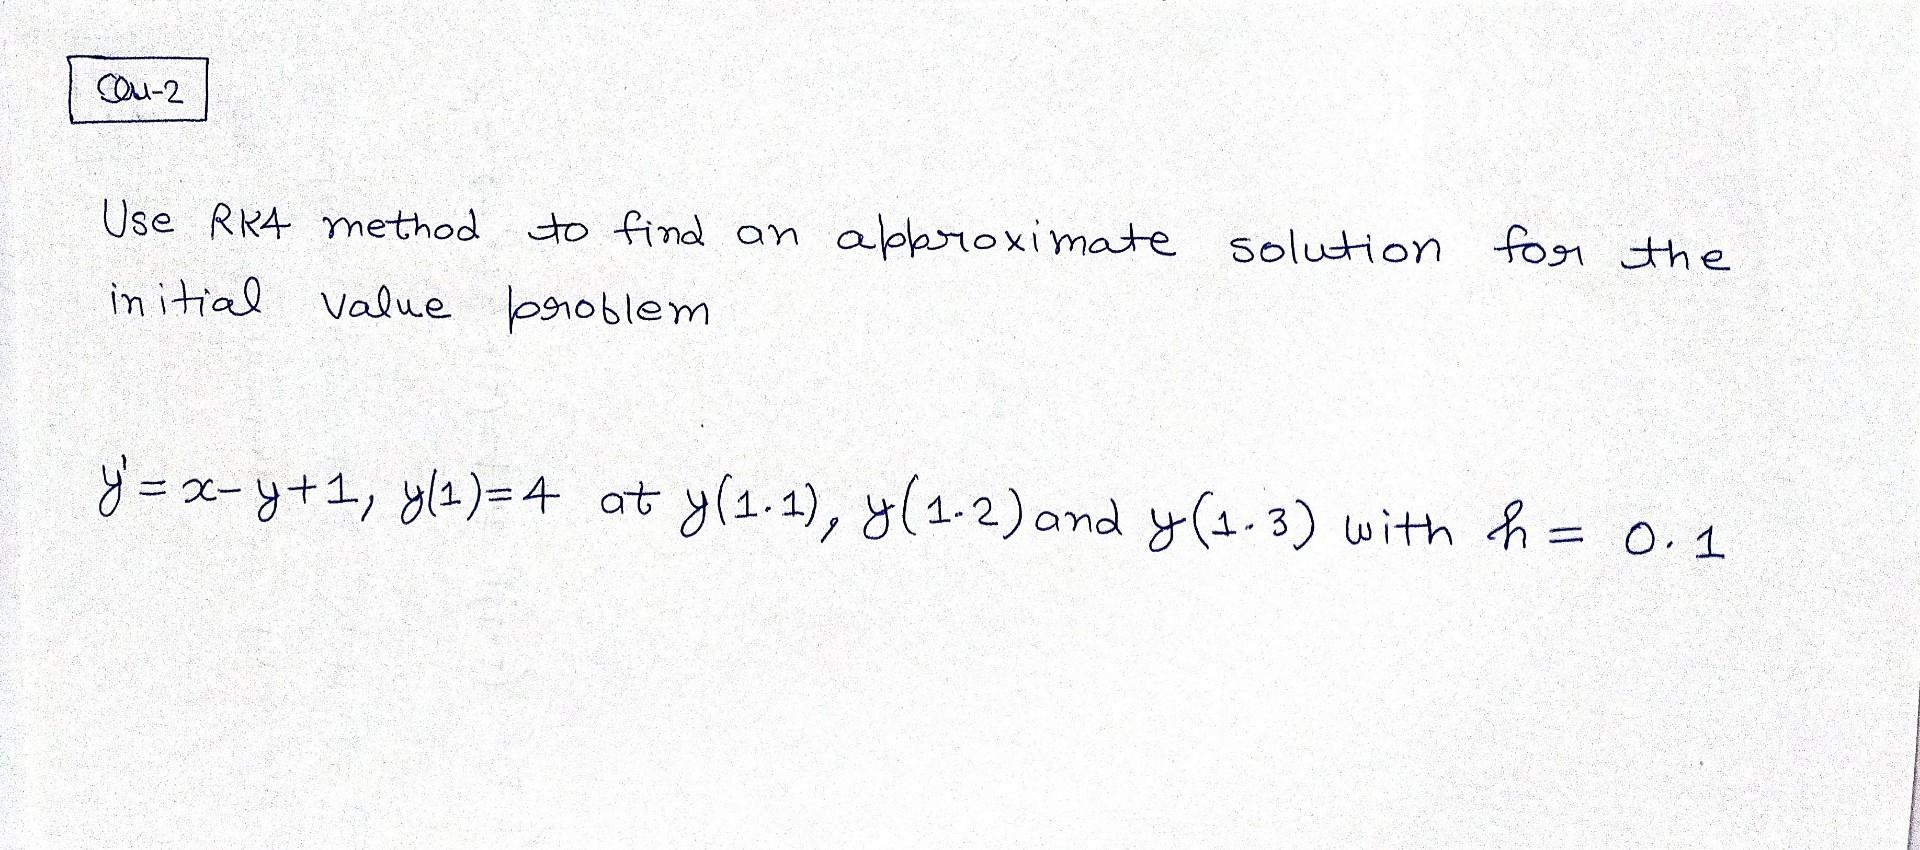 Qu-2
Use RK4 method to find an approximate solution for the
initial value problem
y' = x-y+1, y(1)=4 at y(1.1), y(1.2) and y(1.3) with h = 0.1